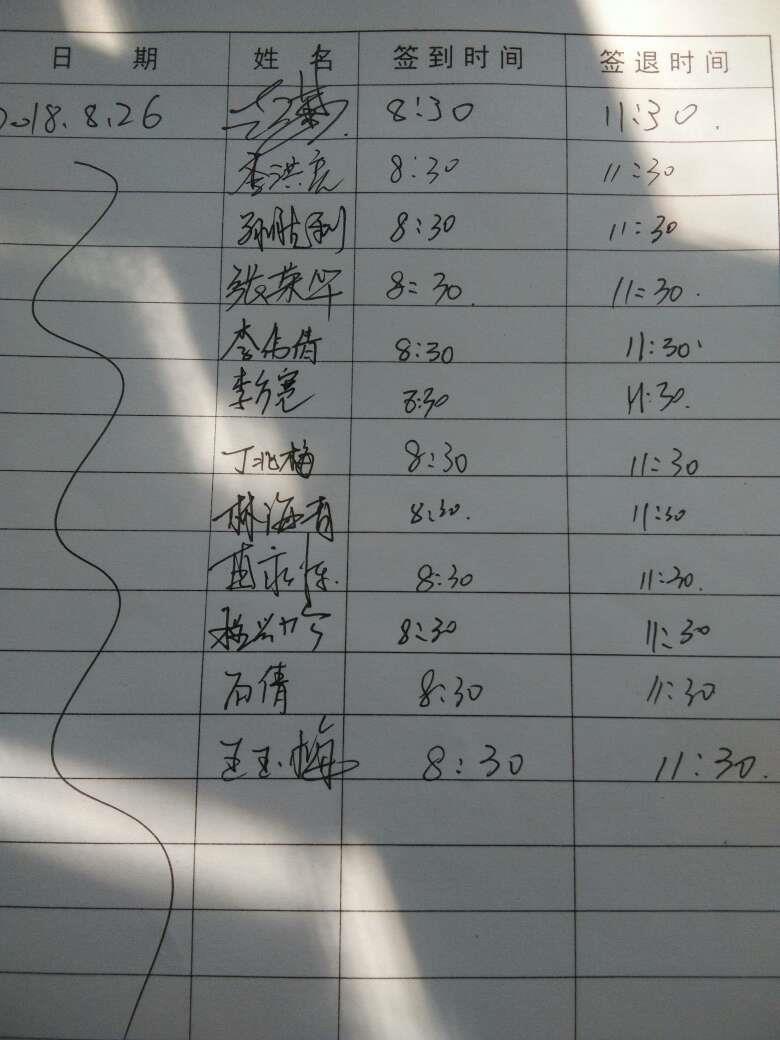 日 期 姓 名 签到时间 签退时间
2018.8.26 8:30 11:30.
李洪亮 8:30 11:30
孙胜利 8:30 11:30
张荣华 8:30. 11:30.
李伟倩 8:30 11:30
李方宽 8:30 11:30.
丁兆梅 8:30 11:30
林海青 8:30. 11:30
8:30 11:30.
8:30 11:30
石倩 8:30 11:30
王玉梅 8:30 11:30.